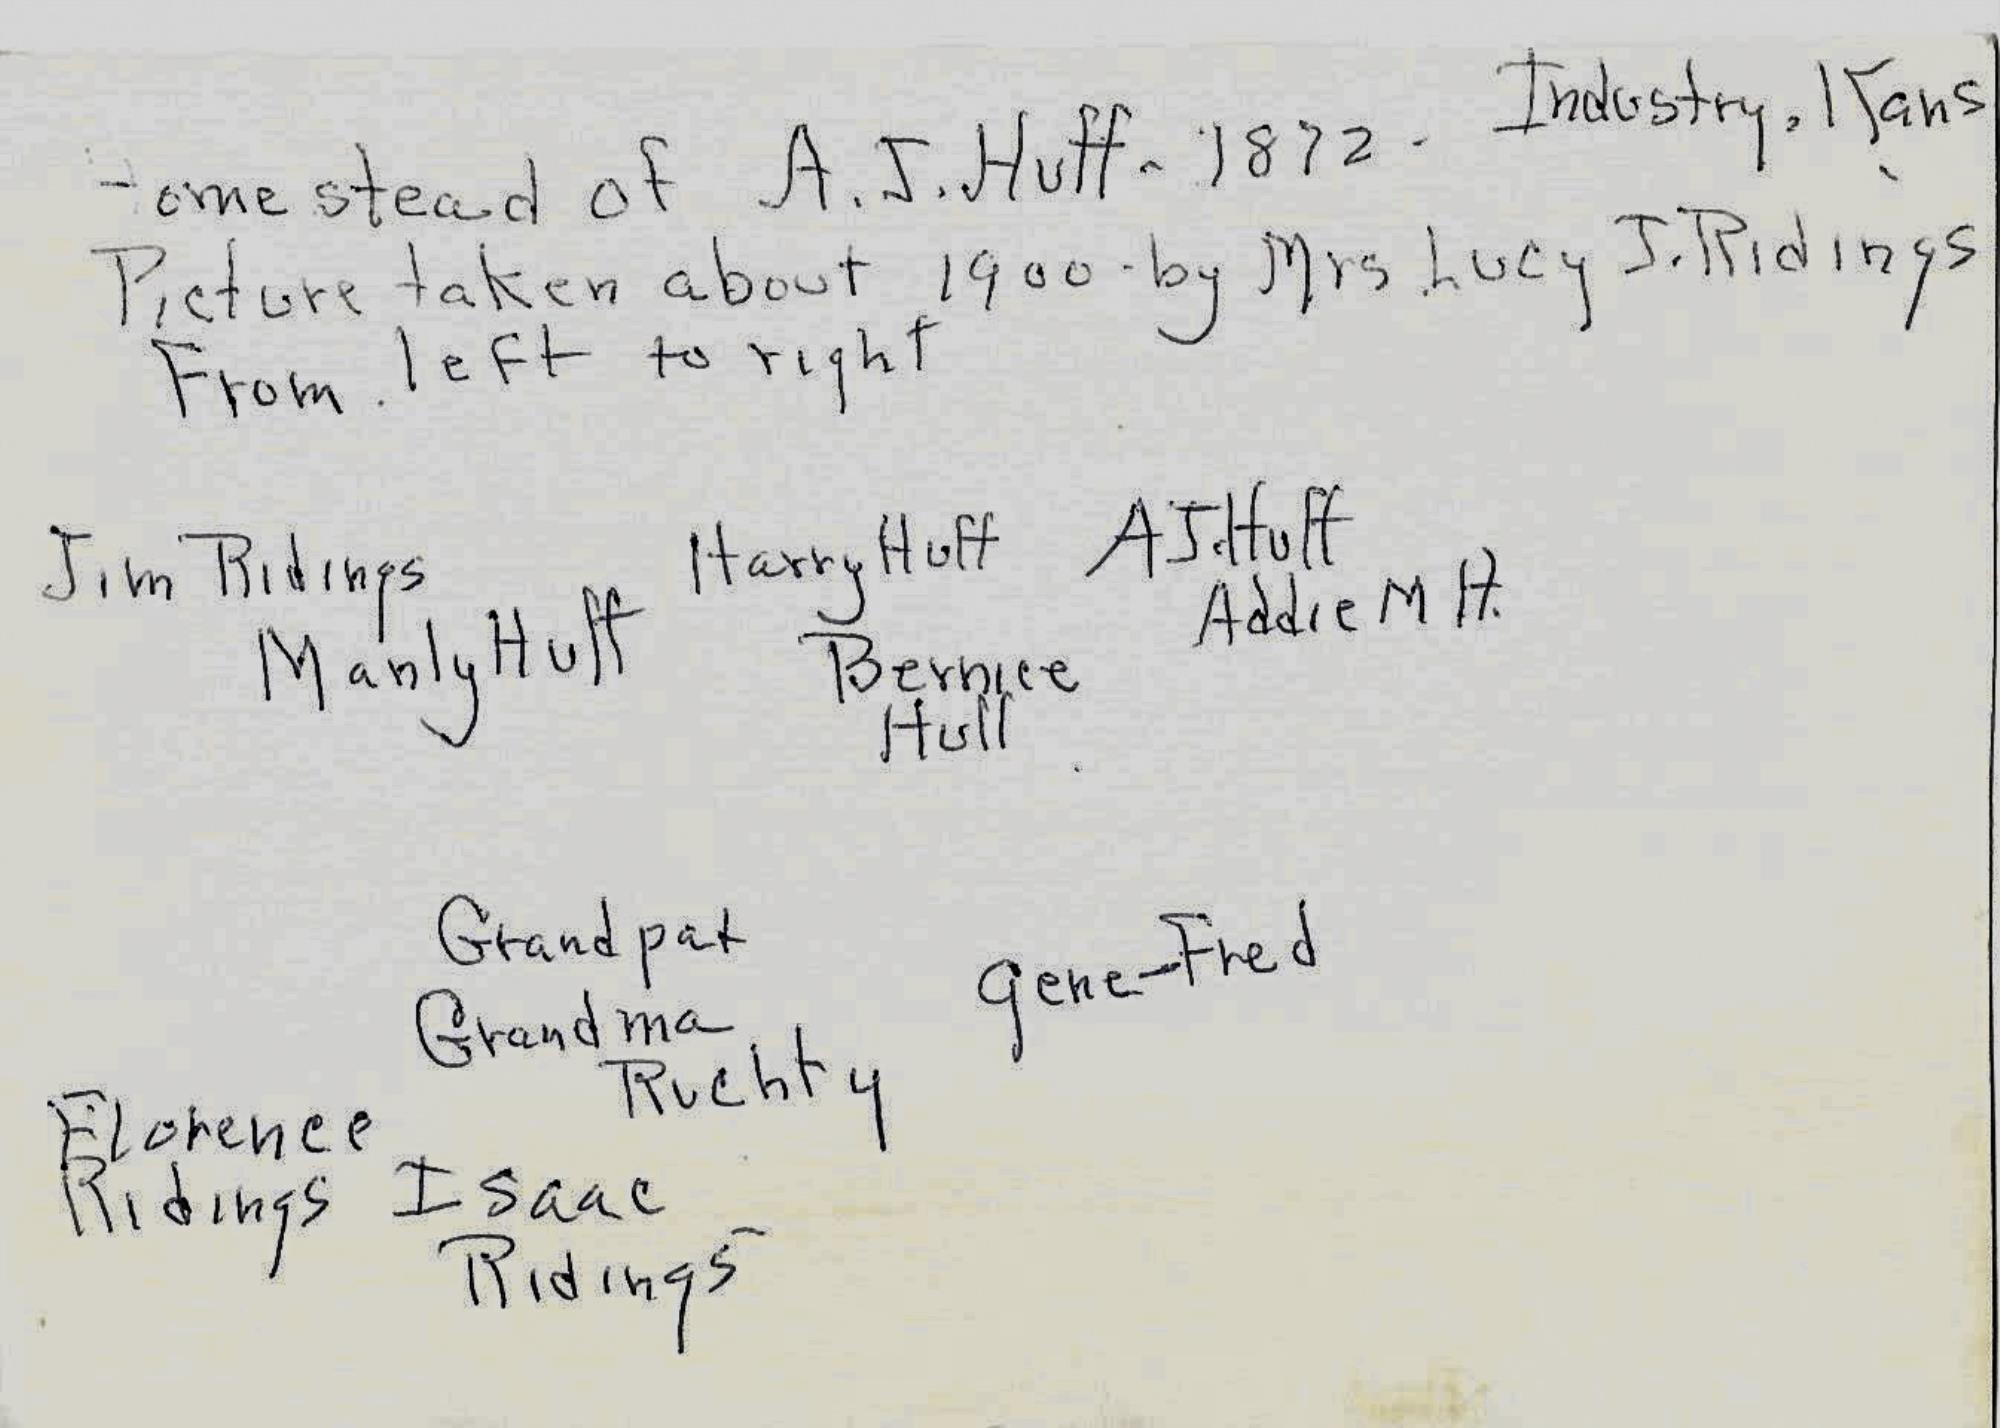 Industry, Kans.
Homestead of A. J. Huff - 1872 -
Picture taken about 1900 - by Mrs Lucy J. Ridings
From left to right
Jim Ridings
Manly Huff
Harry Huff
Bernice
Hull
A J. Huff
Addie M H.
Grandpat
Grandma
Ruchty
Gene-Fred
Florence
Ridings
Isaac
Ridings